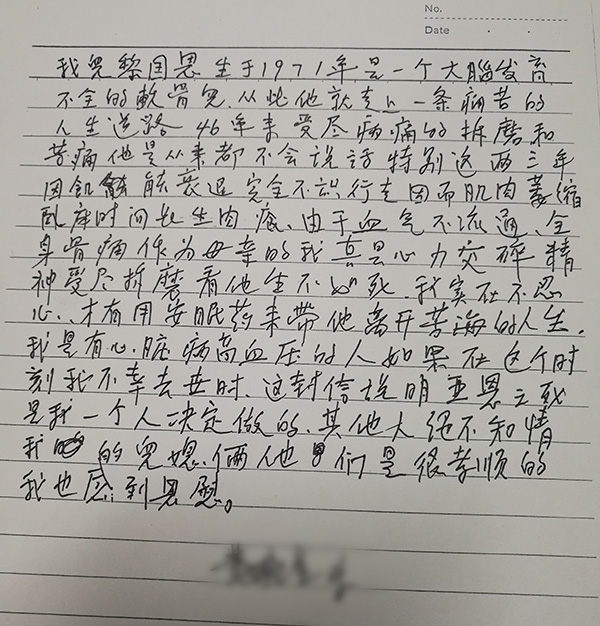 No.
Date
我兒黎国恩生于1971年是一个大腦发育
不全的軟骨兒.从此他就走上一条痛苦的
人生道路46年来受尽病痛的折磨和
苦痛他是从来都不会说話特别这两三年
因飢能衰退完全不识行走因而肌肉萎缩
卧床时间长生肉瘡、由于血气不流通、全
身骨痛作为母亲的我真是心力交碎精
神受尽折磨看他生不如死.我实在不忍
心、才有用安眠药来带他离开苦海的人生.
我是有心脏病高血压的人如果在这个时
刻我不幸去世时.这封信说明亚恩之死
是我一个人决定做的、其他大绝不知情
我的兒媳俩他们是很孝順的
我也感到恩慰。